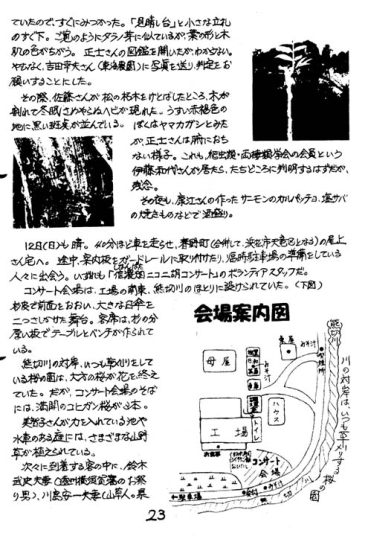 ていたので、すぐにみつかった。「見晴し台」と小さな立札
のすぐ下。ご覧のようにタラノ芽に似ているが、葉の形と木
肌の色がちがう。正士さんの図鑑を開いたが、わからない。
やむなく、吉田幸夫さん に写真を送り、判定をお
願いすることにした。
その際、佐藤さんが松の朽木をけとばしたところ、木が
割れて冬眠さめやらぬヘビが現れた。うすい赤褐色の
地に黒い斑点が並んでいる。
ぼくはヤマカガシとみた
が、正士さんは腑におち
ない様子。これも、爬虫類・両棲類学会の会員という
伊藤 さんが居たら、たちどころに判明するはずだが、
残念。
その夜も、原江さんの作ったサーモンのカルパッチョ、塩サバ
の焼きものなどで酒盛り。
12日(日)も晴。40分ほど車を走らせ、春野町(合併して、浜松市天竜区となる)の尾上
さん宅へ。途中、案内板をガードレールに取り付けたり、臨時駐車場の準備をしている
人々に出会う。いずれも「 ニコニコ朝コンサート」のボランティアスタッフだ。
コンサート会場は、工場の南東、熊切川のほとりに設けられていた。(下図)
杉皮で前面をおおい、大きな日傘を
二つさしかけた舞台。客席は、杉の分
厚い板でテーブルとベンチが作られて
いる。
熊切川の対岸、いつも草刈りをして
いる桜の園は、大方の桜が花を終え
ていた。だが、コンサート会場のそば
には、満開のコヒガン桜が3本。
美智子さんが力を入れている池や
水車のある庭には、さまざまな山野
草が植えられている。
次々に到着する客の中に、鈴木
武史夫妻( のお祭
り男)、川島安一夫妻(山草人の県
会場案内図
母屋
工場
トイレ
ハウス
コンサート
会場
駐車場
熊切川
川の対岸は、いつも草刈りする
桜の園
23